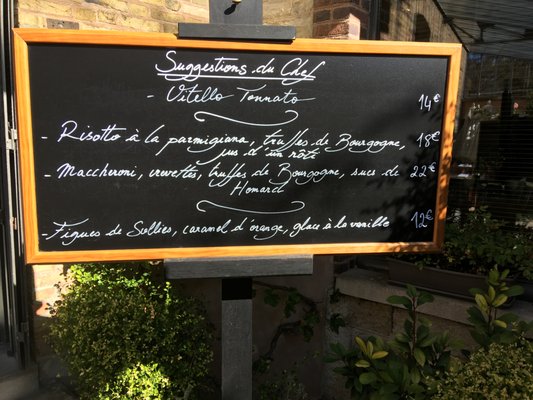 Suggestions du Chef
- Vitello Tonnato 14€
- Risotto à la parmigiana, truffes de Bourgogne, 18€
jus d'un rôti
- Maccheroni, crevettes, truffes de Bourgogne, sucs de 22€
Homard
- Figues de Solliès, caramel d'orange, glace à la vanille 12€